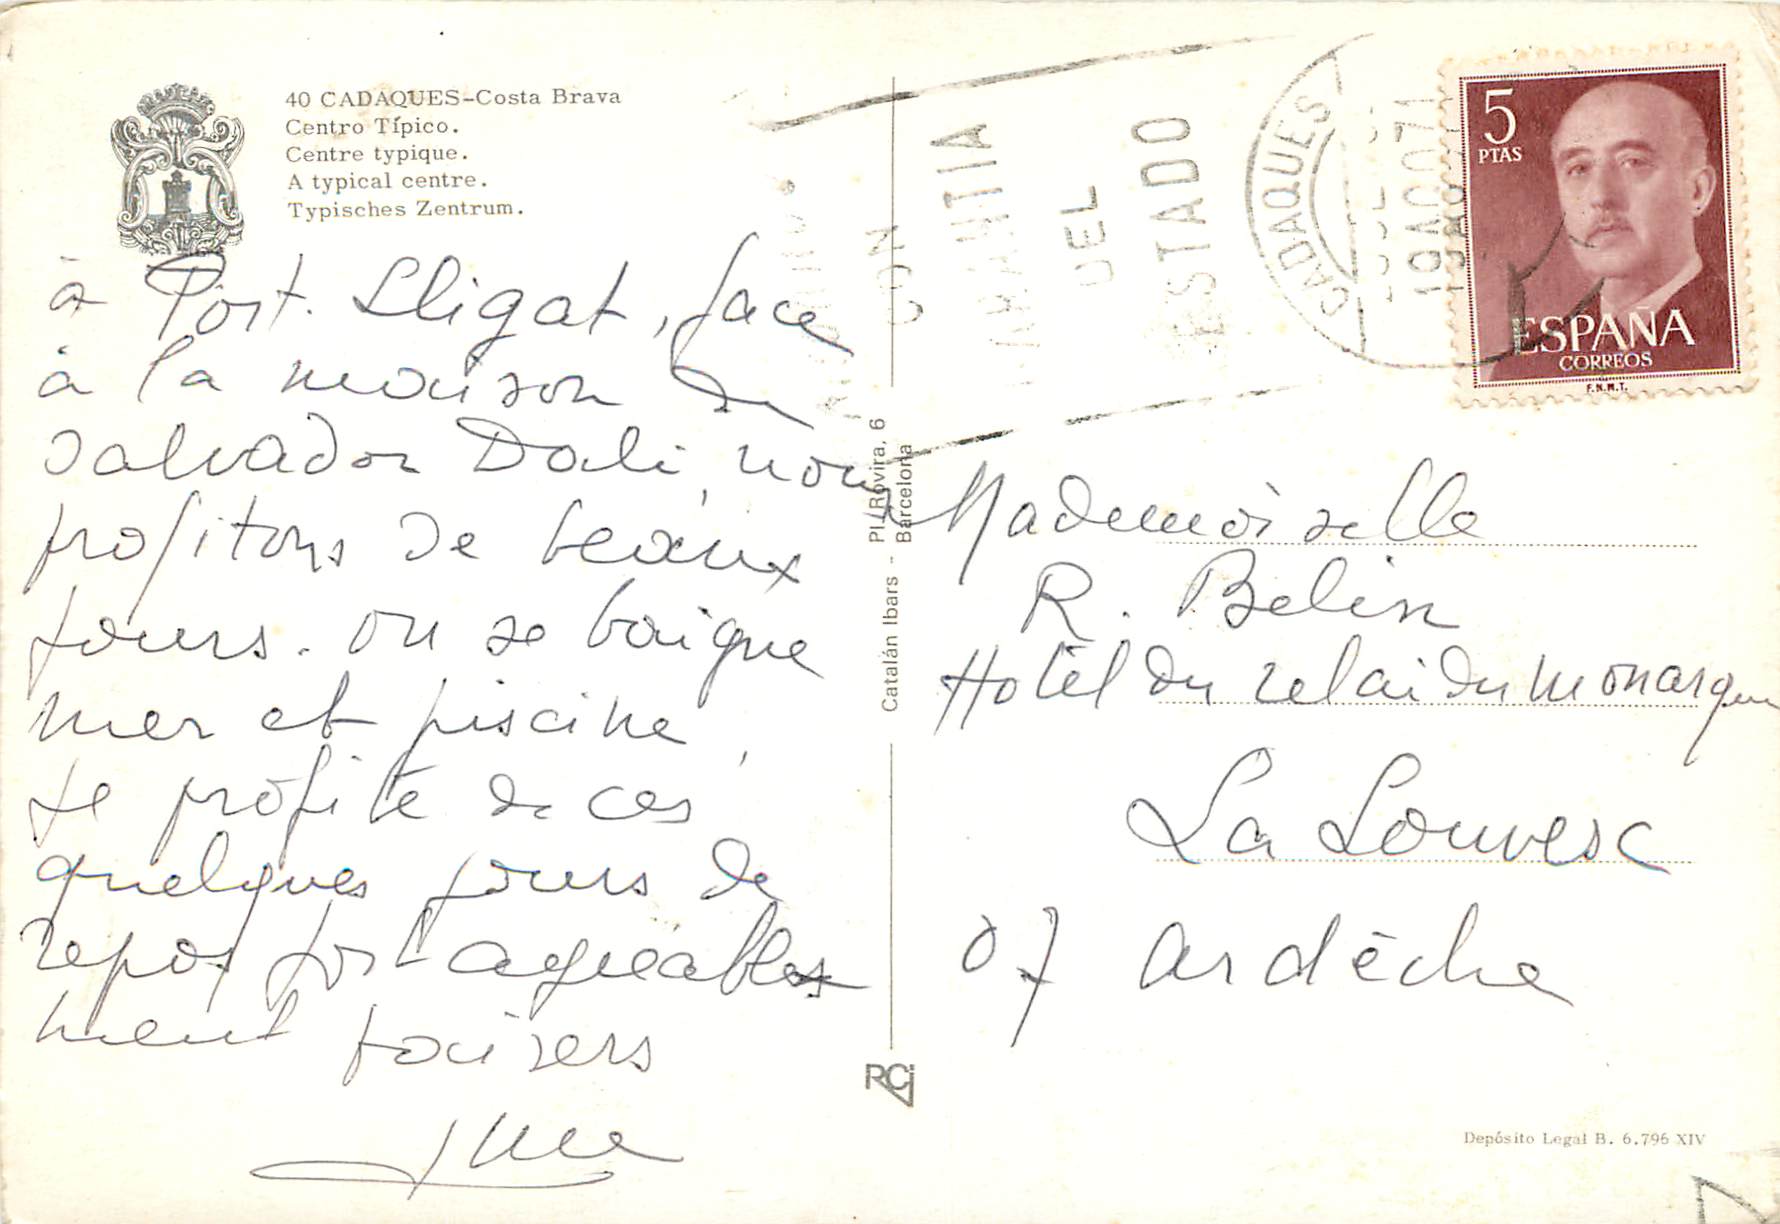 40 CADAQUES-Costa Brava
Centro Típico.
Centre typique.
A typical centre.
Typisches Zentrum.
à Port. Lligat, face
à la maison de
Salvador Dali, nous
profitons de beaux
jours. on se baigne
mer et piscine,
Je profite de ces
quelques jours de
repos fort agréables
ment baisers
Catalán Ibars - Pl. Rovira, 6
Barcelona
CON
DEL
ESTADO
CADAQUES
19 AGO 71
5
PTAS
ESPAÑA
CORREOS
F.N.M.T.
Mademoiselle
R. Belin
Hotel du relai du monarque
La Louvesc
07 ardèche
RCI
Depósito Legal B. 6.796 XIV